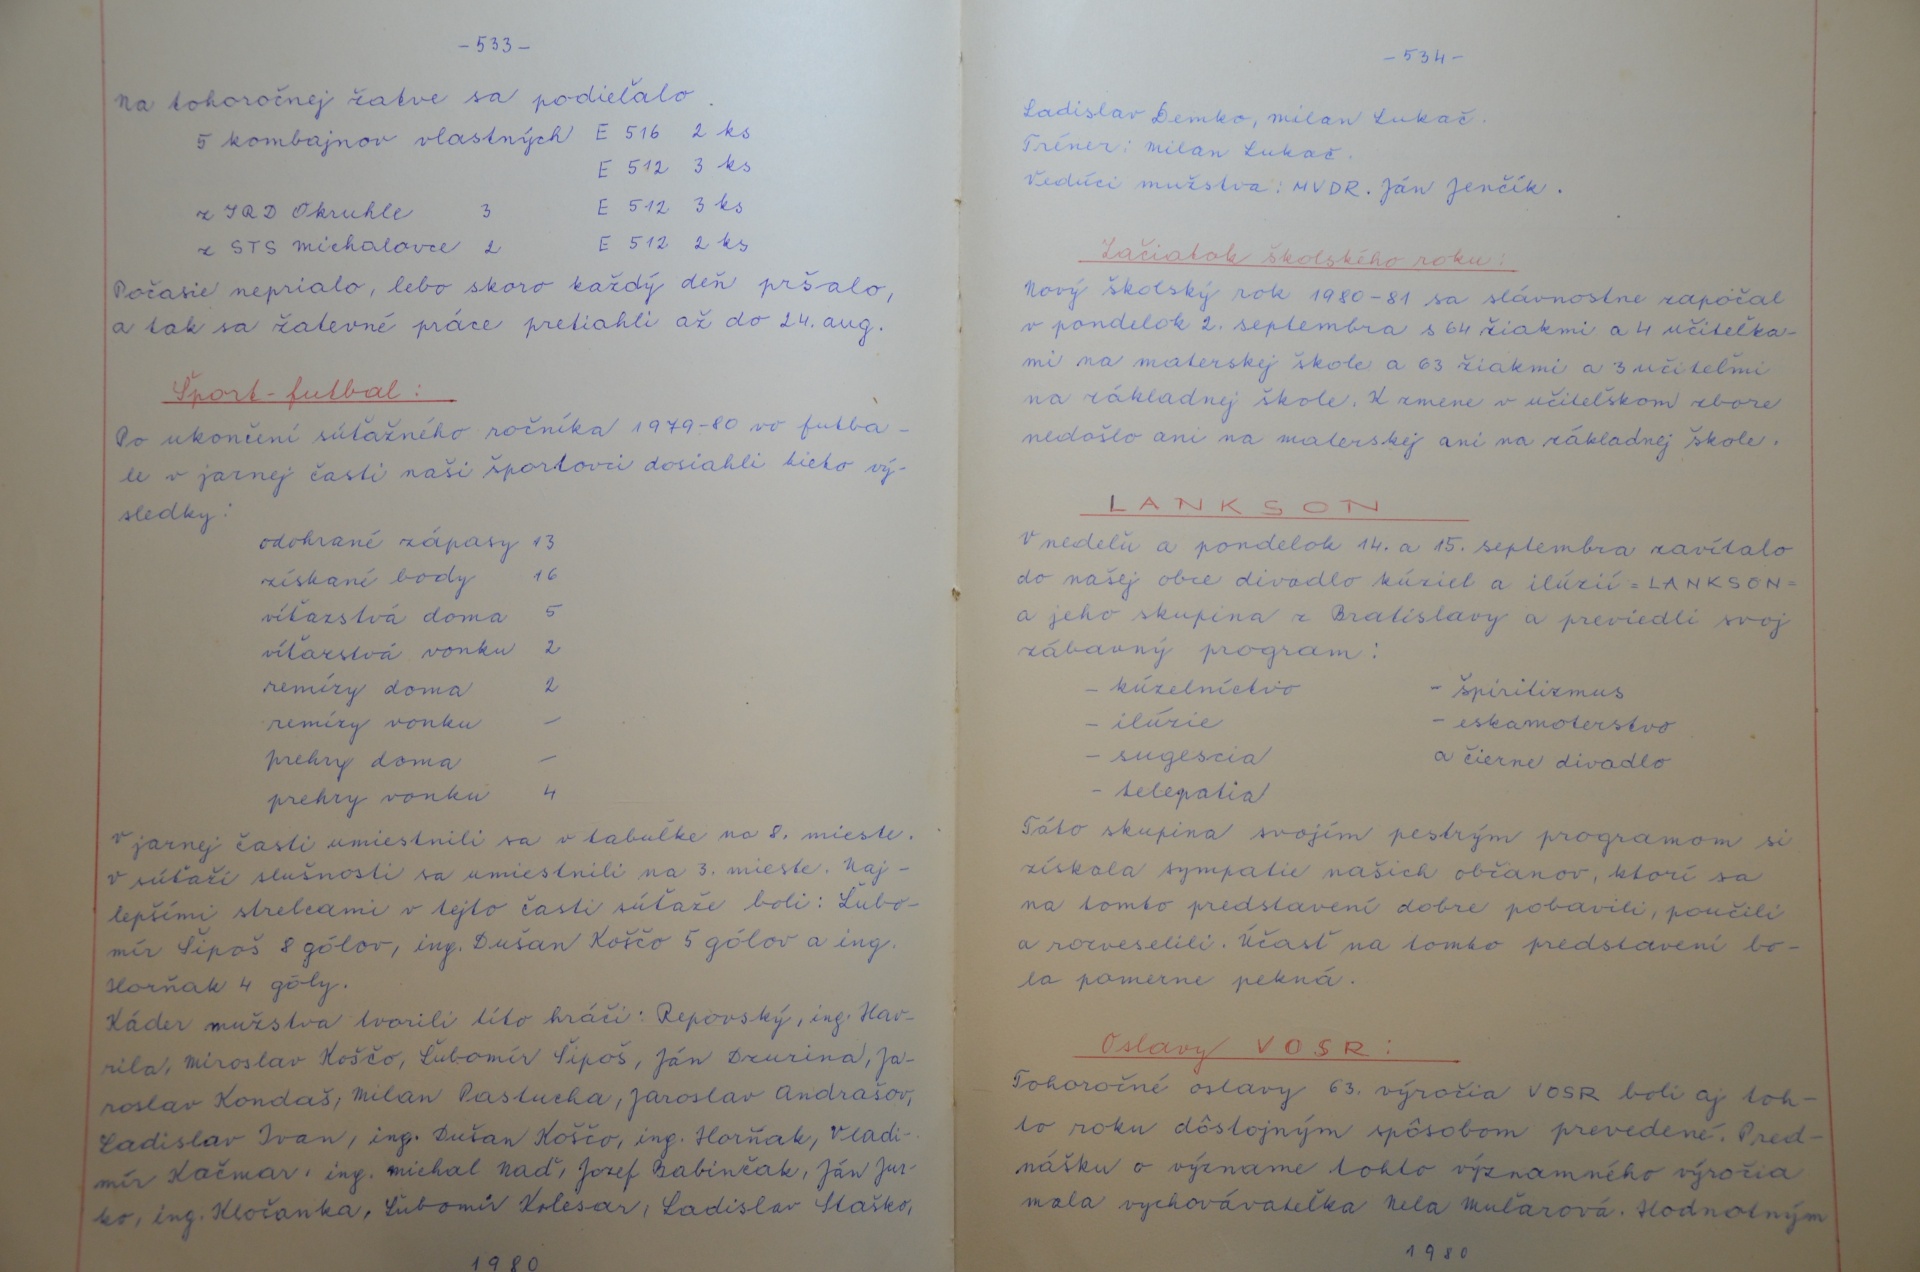 -533-
Na tohoročnej žatve sa podieľalo.
5 kombajnov vlastných E 516 2 ks
E 512 3 ks
z JRD Okruhle 3 E 512 3 ks
z STS Michalovce 2 E 512 2 ks
Počasie neprialo, lebo skoro každý deň pršalo,
a tak sa žatevné práce pretiahli až do 24. aug.
Šport-futbal:
Po ukončení súťažného ročníka 1979-80 vo futba-
le v jarnej časti naši športovci dosiahli tieto vý-
sledky:
odohrané zápasy 13
získané body 16
víťazstvá doma 5
víťazstvá vonku 2
remízy doma 2
remízy vonku -
prehry doma -
prehry vonku 4
V jarnej časti umiestnili sa v tabuľke na 8. mieste.
V súťaží slušnosti sa umiestnili na 3. mieste. Naj-
lepšími strelcami v tejto časti súťaže boli: Ľubo-
mír Šipoš 8 gólov, ing. Dušan Koščo 5 gólov a ing.
Horňak 4 góly.
Káder mužstva tvorili títo hráči: Repovský, ing. Hav-
rila, Miroslav Koščo, Ľubomír Šipoš, Ján Dzurina, Ja-
roslav Kondaš, Milan Pastucha, Jaroslav Andrašov,
Ladislav Ivan, ing. Dušan Koščo, ing. Horňak, Vladi-
mír Kačmar, ing. Michal Naď, Jozef Babinčak, Ján Jur-
ko, ing. Kločanka, Ľubomír Kolesar, Ladislav Staško,
1980
-534-
Ladislav Demko, Milan Lukač.
Tréner: Milan Lukač.
Vedúci mužstva: MVDR. Ján Jenčík.
Začiatok školského roku:
Nový školský rok 1980-81 sa slávnostne započal
v pondelok 2. septembra s 64 žiakmi a 4 učiteľka-
mi na materskej škole a 63 žiakmi a 3 učiteľmi
na základnej škole. K zmene v učiteľskom zbore
nedošlo ani na materskej ani na základnej škole.
LANKSON
V nedeľu a pondelok 14. a 15. septembra zavítalo
do našej obce divadlo kúziel a ilúzií = LANKSON =
a jeho skupina z Bratislavy a previedli svoj
zábavný program:
- kúzelníctvo - špiritizmus
- ilúzie - eskamoterstvo
- sugescia a čierne divadlo
- telepatia
Táto skupina svojím pestrým programom si
získala sympatie našich občanov, ktorí sa
na tomto predstavení dobre pobavili, poučili
a rozveselili. Účasť na tomto predstavení bo-
la pomerne pekná.
Oslavy VOSR:
Tohoročné oslavy 63. výročia VOSR boli aj toh-
to roku dôstojným spôsobom prevedené. Pred-
nášku o význame tohto významného výročia
mala vychovávateľka Nela Muľarová. Hodnotným
1980